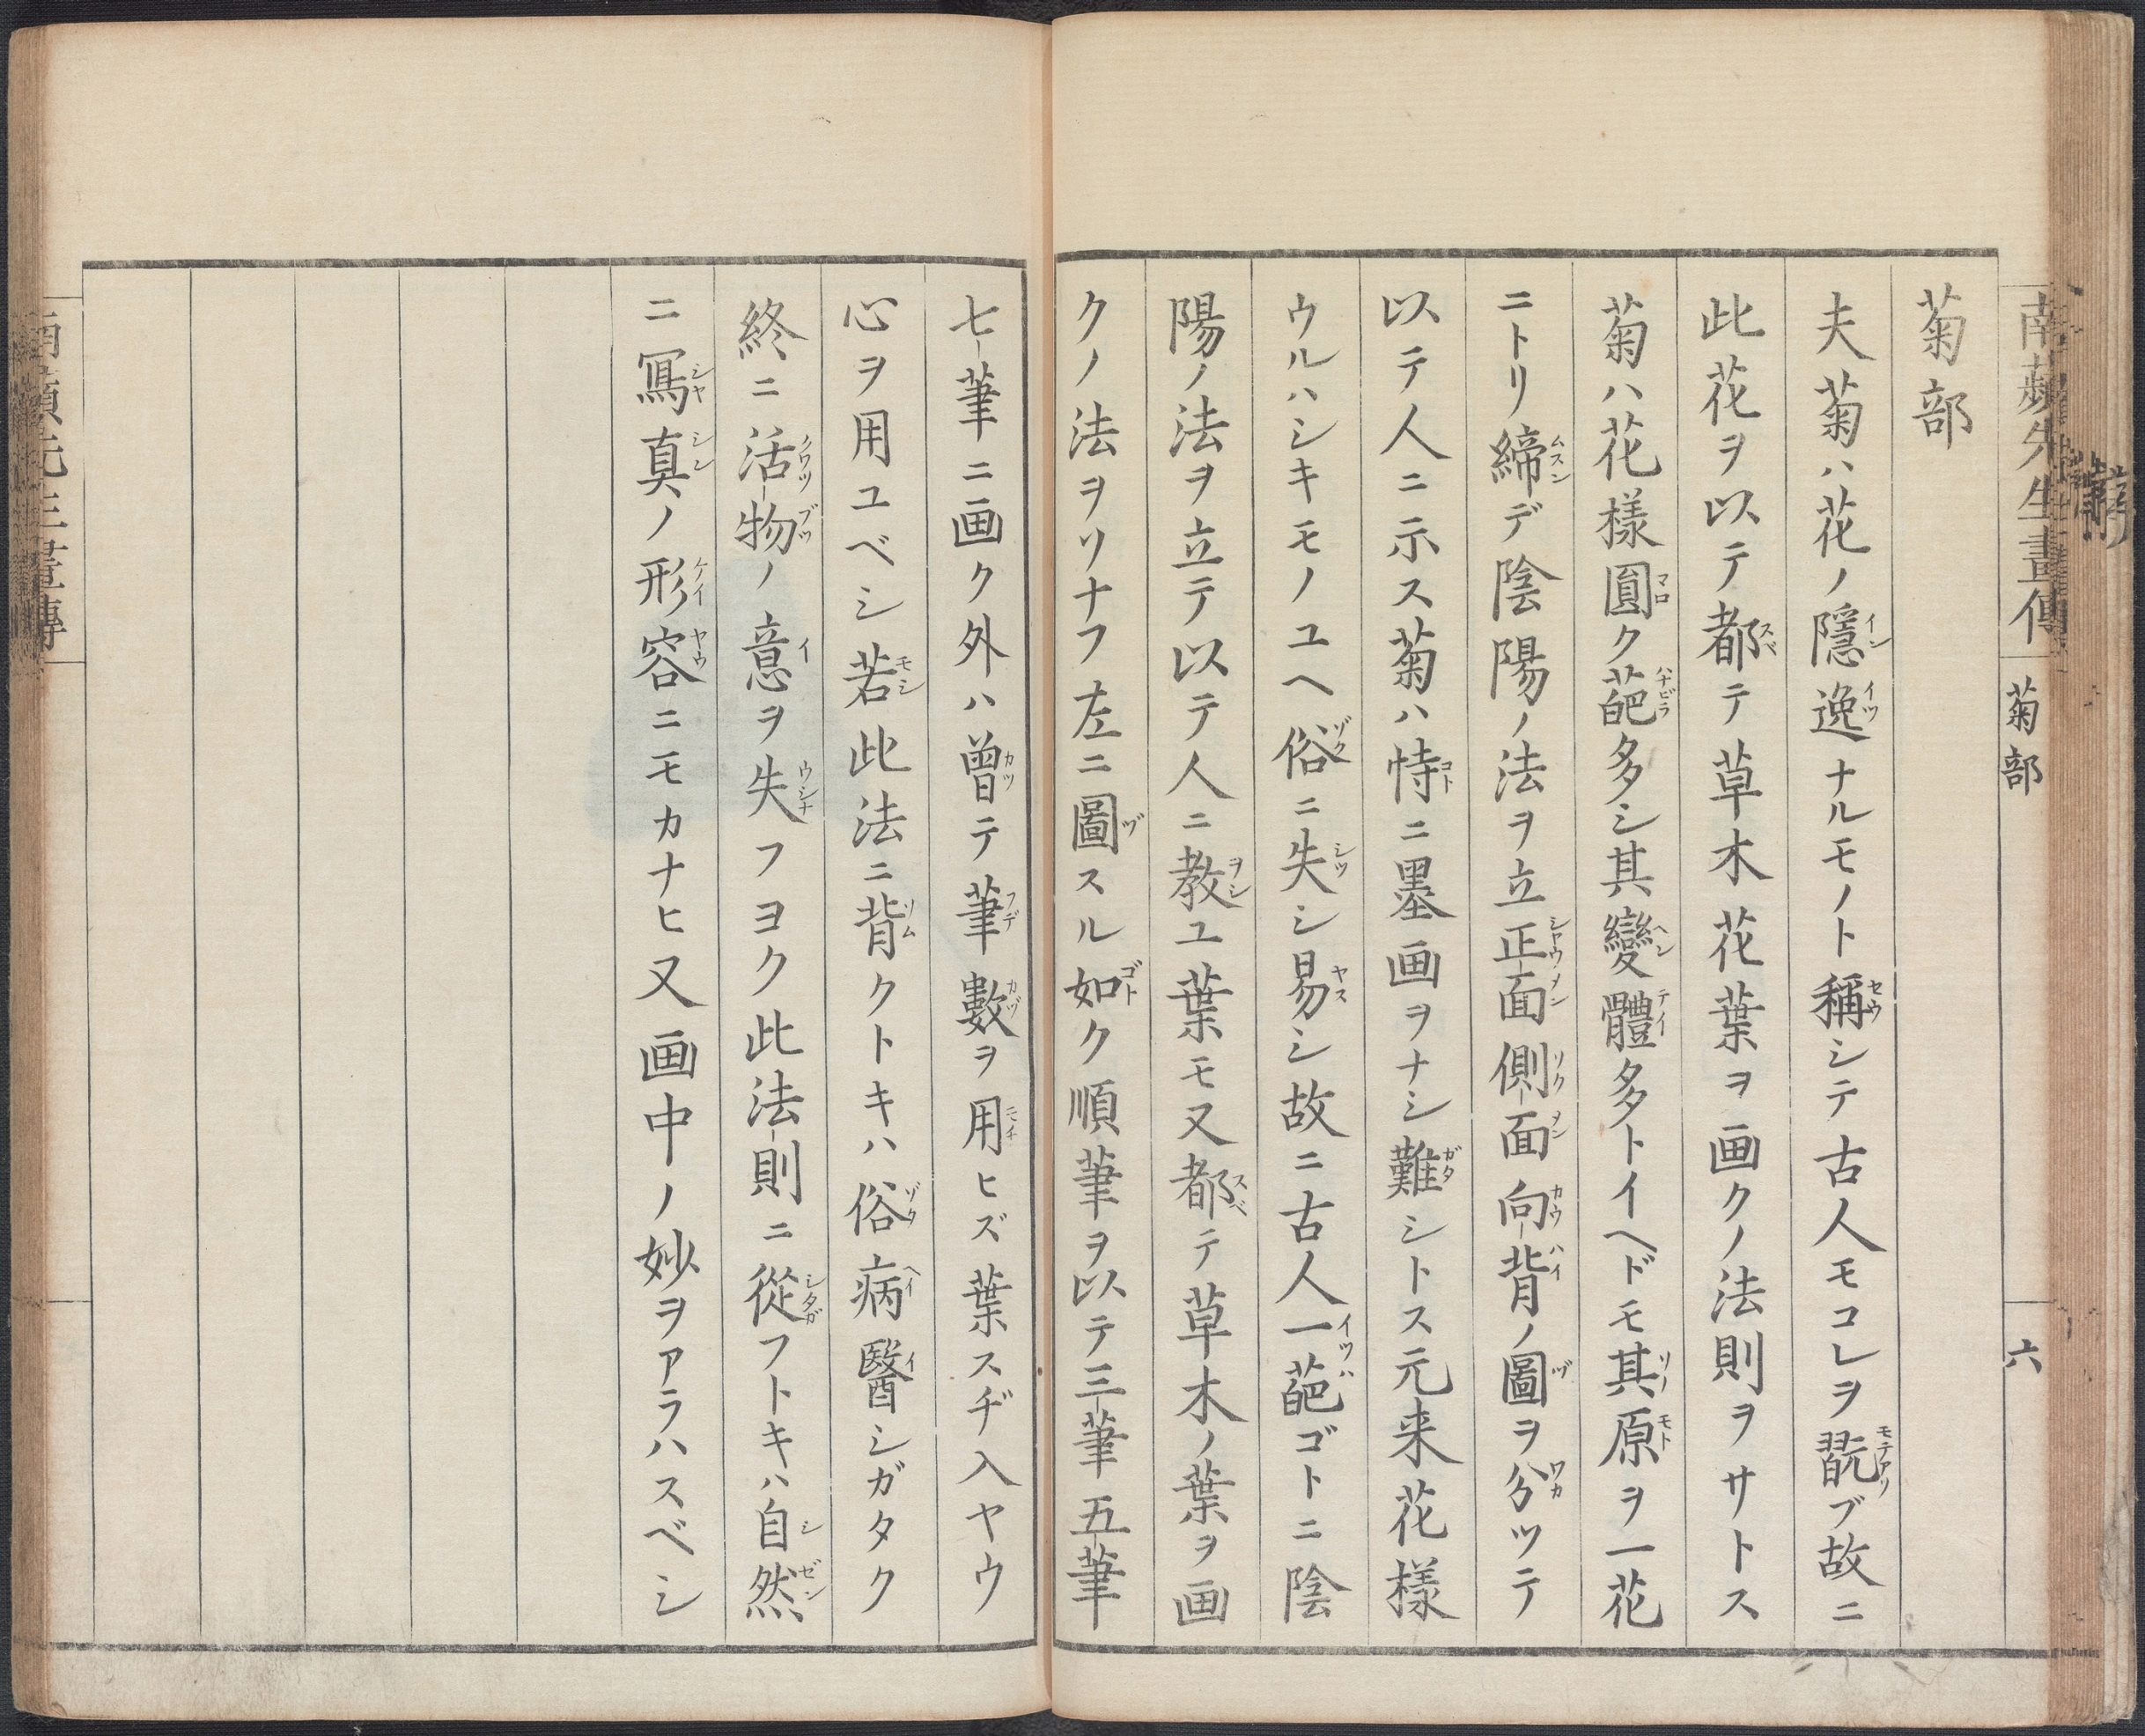 南蘋先生畫傳 菊部 六
菊部
夫菊ハ花ノ隱逸ナルモノト稱シテ古人モコレヲ翫ブ故ニ
此花ヲ以テ都テ草木花葉ヲ画クノ法則ヲサトス
菊ハ花樣圓ク葩多シ其變體多トイヘドモ其原ヲ一花
ニトリ締デ陰陽ノ法ヲ立正面側面向背ノ圖ヲ分ツテ
以テ人ニ示ス菊ハ恃ニ墨画ヲナシ難シトス元来花樣
ウルハシキモノユヘ俗ニ失シ易シ故ニ古人一葩ゴトニ陰
陽ノ法ヲ立テ以テ人ニ教ユ葉モ又都テ草木ノ葉ヲ画
クノ法ヲソナフ左ニ圖スル如ク順筆ヲ以テ三筆五筆
七筆ニ画ク外ハ曽テ筆數ヲ用ヒズ葉スヂ入ヤウ
心ヲ用ユベシ若此法ニ背クトキハ俗病醫シガタク
終ニ活物ノ意ヲ失フヨク此法則ニ從フトキハ自然
ニ冩真ノ形容ニモカナヒ又画中ノ妙ヲアラハスベシ
南蘋先生畫傳